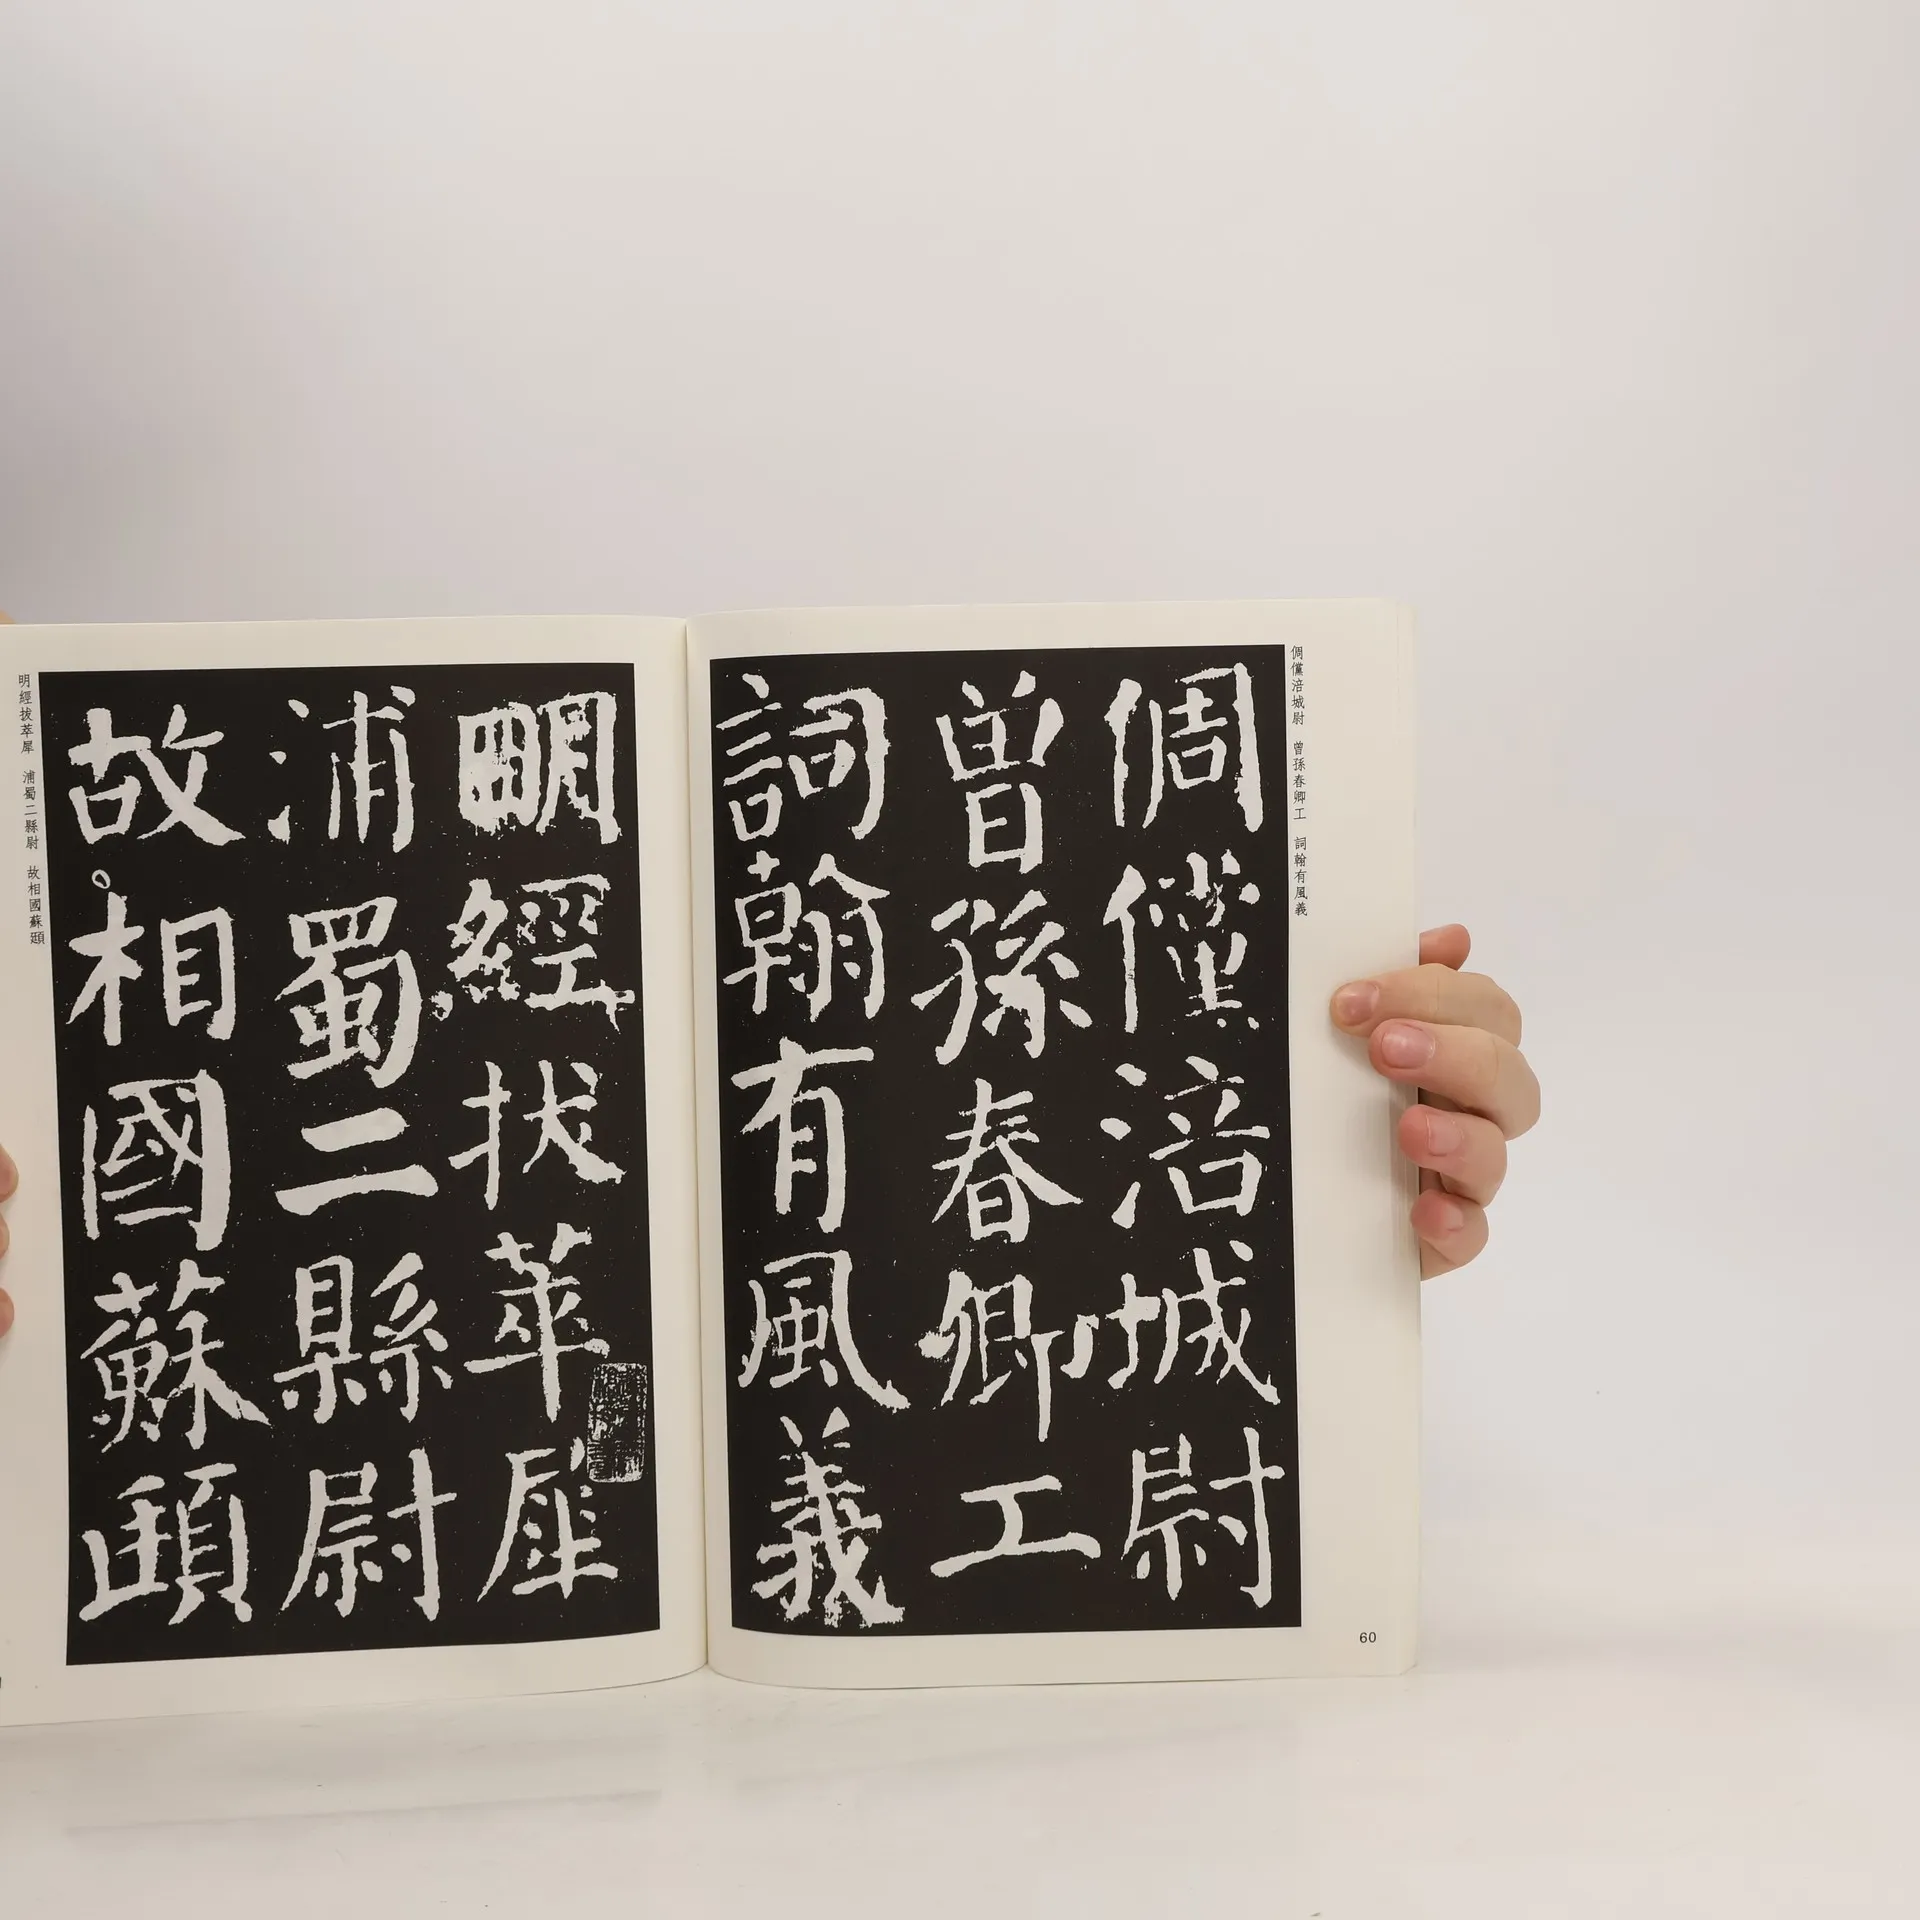 倜儻涪城尉　曾孫春卿工　詞翰有風義
倜儻涪城尉
曾孫春卿工
詞翰有風義
60
明經拔萃犀　浦蜀二縣尉　故相國蘇頲
明經拔萃犀
浦蜀二縣尉
故相國蘇頲